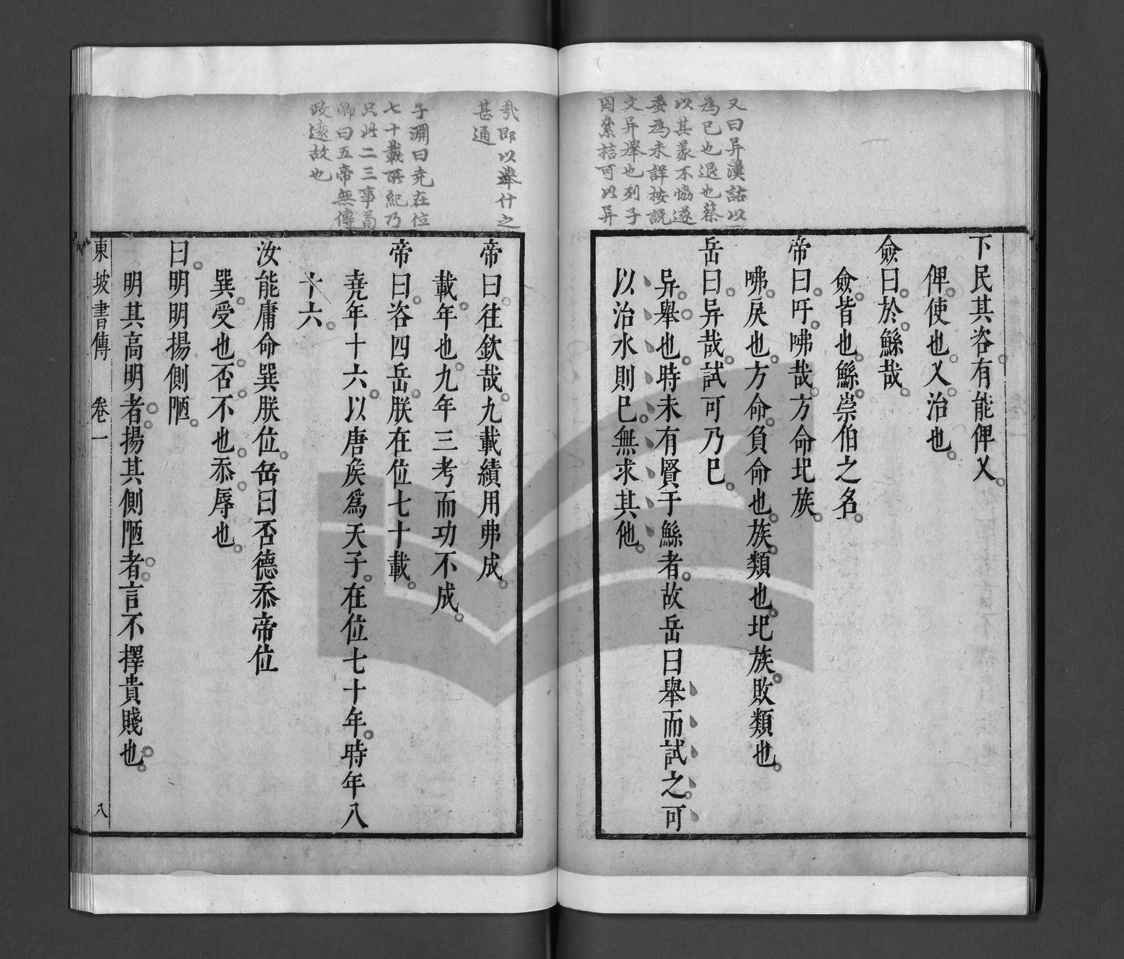 又曰异漢詁以
為已也退也蔡
以其義不恊遂
委為未詳按説
文异舉也列子
因桊拮可以异
下民其咨有能俾乂
俾使也乂治也
僉曰於鯀哉
僉皆也鯀崇伯之名
帝曰吁咈哉方命圮族
咈戾也方命負命也族類也圮族敗類也
岳曰异哉試可乃已
异舉也時未有賢于鯀者故岳曰舉而試之可
以治水則已無求其他
哉即以舉什之
甚通
子淵曰尭在位
七十載所紀乃
只此二三事荀
卿曰五帝無傳
政遠故也
帝曰往欽哉九載績用弗成
載年也九年三考而功不成
帝曰咨四岳朕在位七十載
堯年十六以唐侯爲天子在位七十年時年八
十六
汝能庸命巽朕位岳曰否德忝帝位
巽受也否不也忝辱也
曰明明揚側陋
明其高明者揚其側陋者言不擇貴賤也
東坡書傳 卷一 八